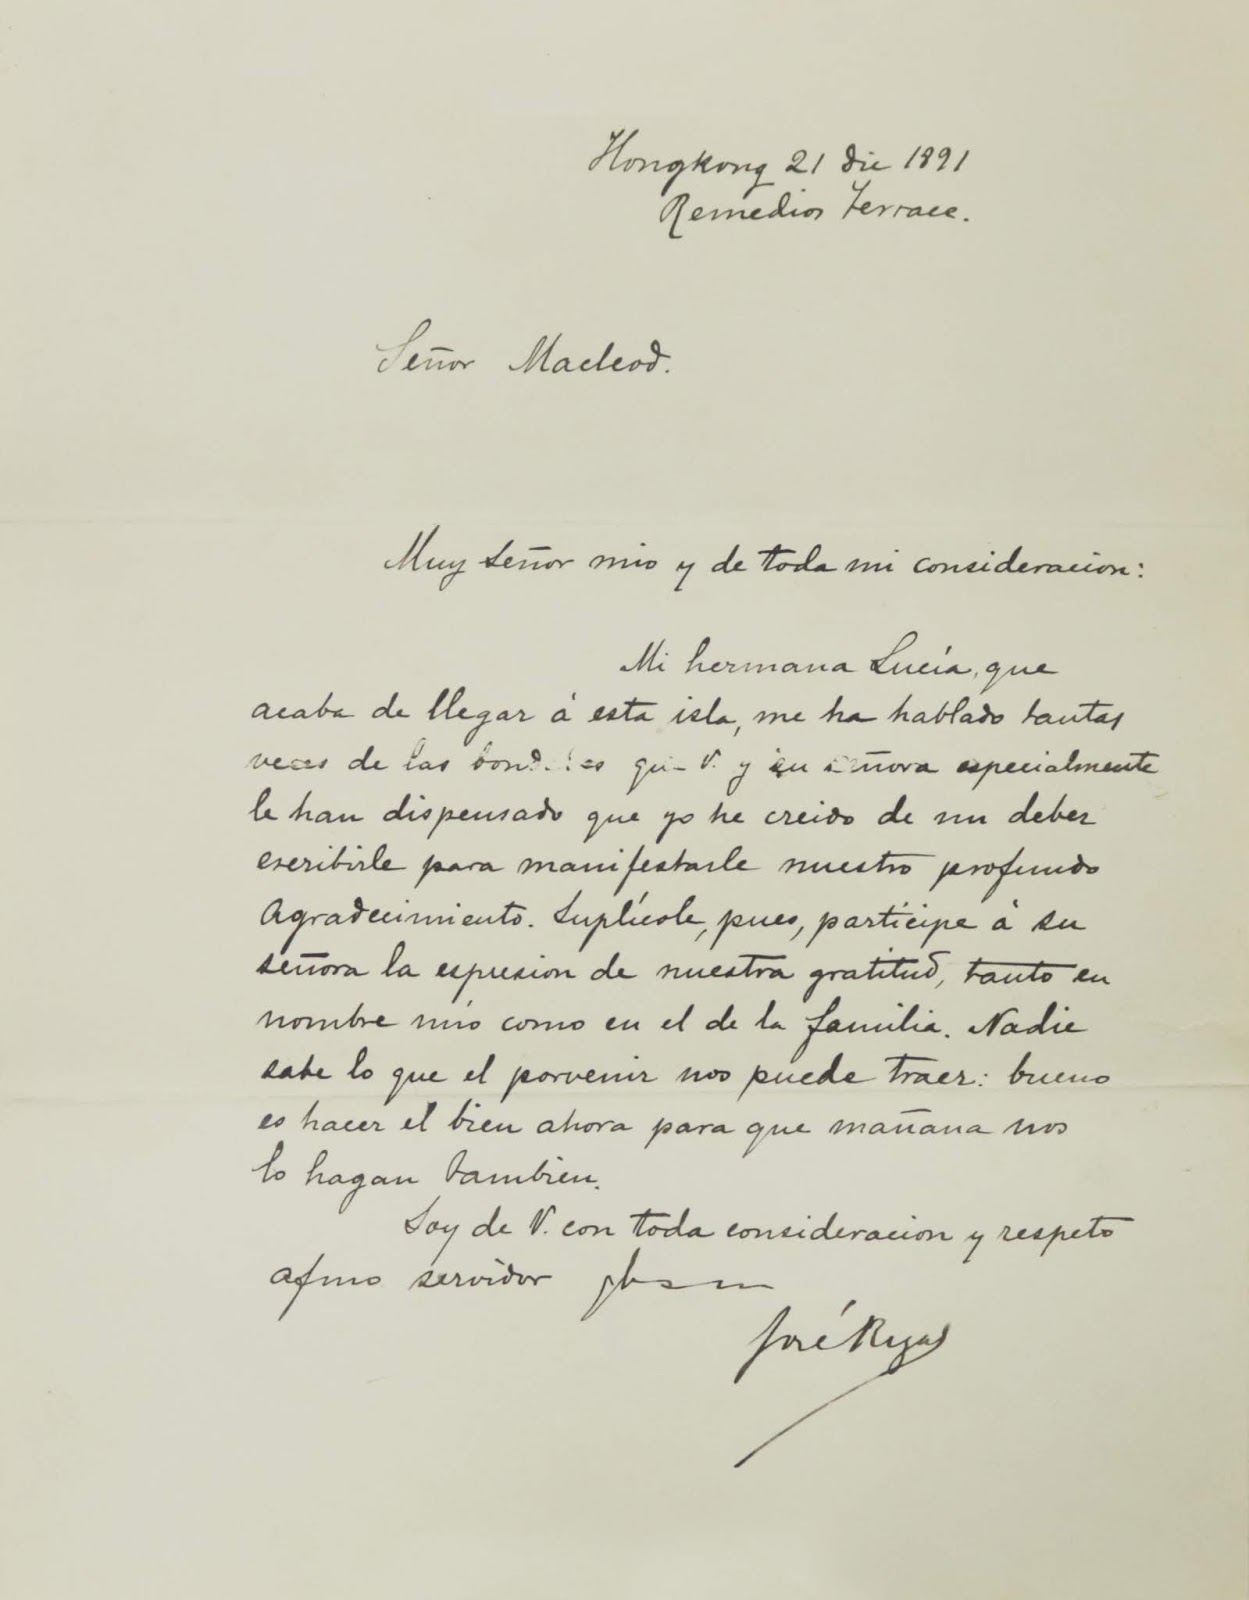 Hongkong 21 dic 1891
Remedios Terrace.
Señor Macleod.
Muy señor mio y de toda mi consideracion:
Mi hermana Lucía, que
acaba de llegar á esta isla, me ha hablado tantas
veces de las V. y su señora especialmente
le han dispensado que yo he creido de un deber
escribirle para manifestarle nuestro profundo
agradecimiento. Suplícole, pues, participe á su
señora la espresion de nuestra gratitud, tanto en
nombre mio como en el de la familia. Nadie
sabe lo que el porvenir nos puede traer: bueno
es hacer el bien ahora para que mañana nos
lo hagan tambien.
Soy de V. con toda consideracion y respeto
afmo servidor qbsm
José Rizal